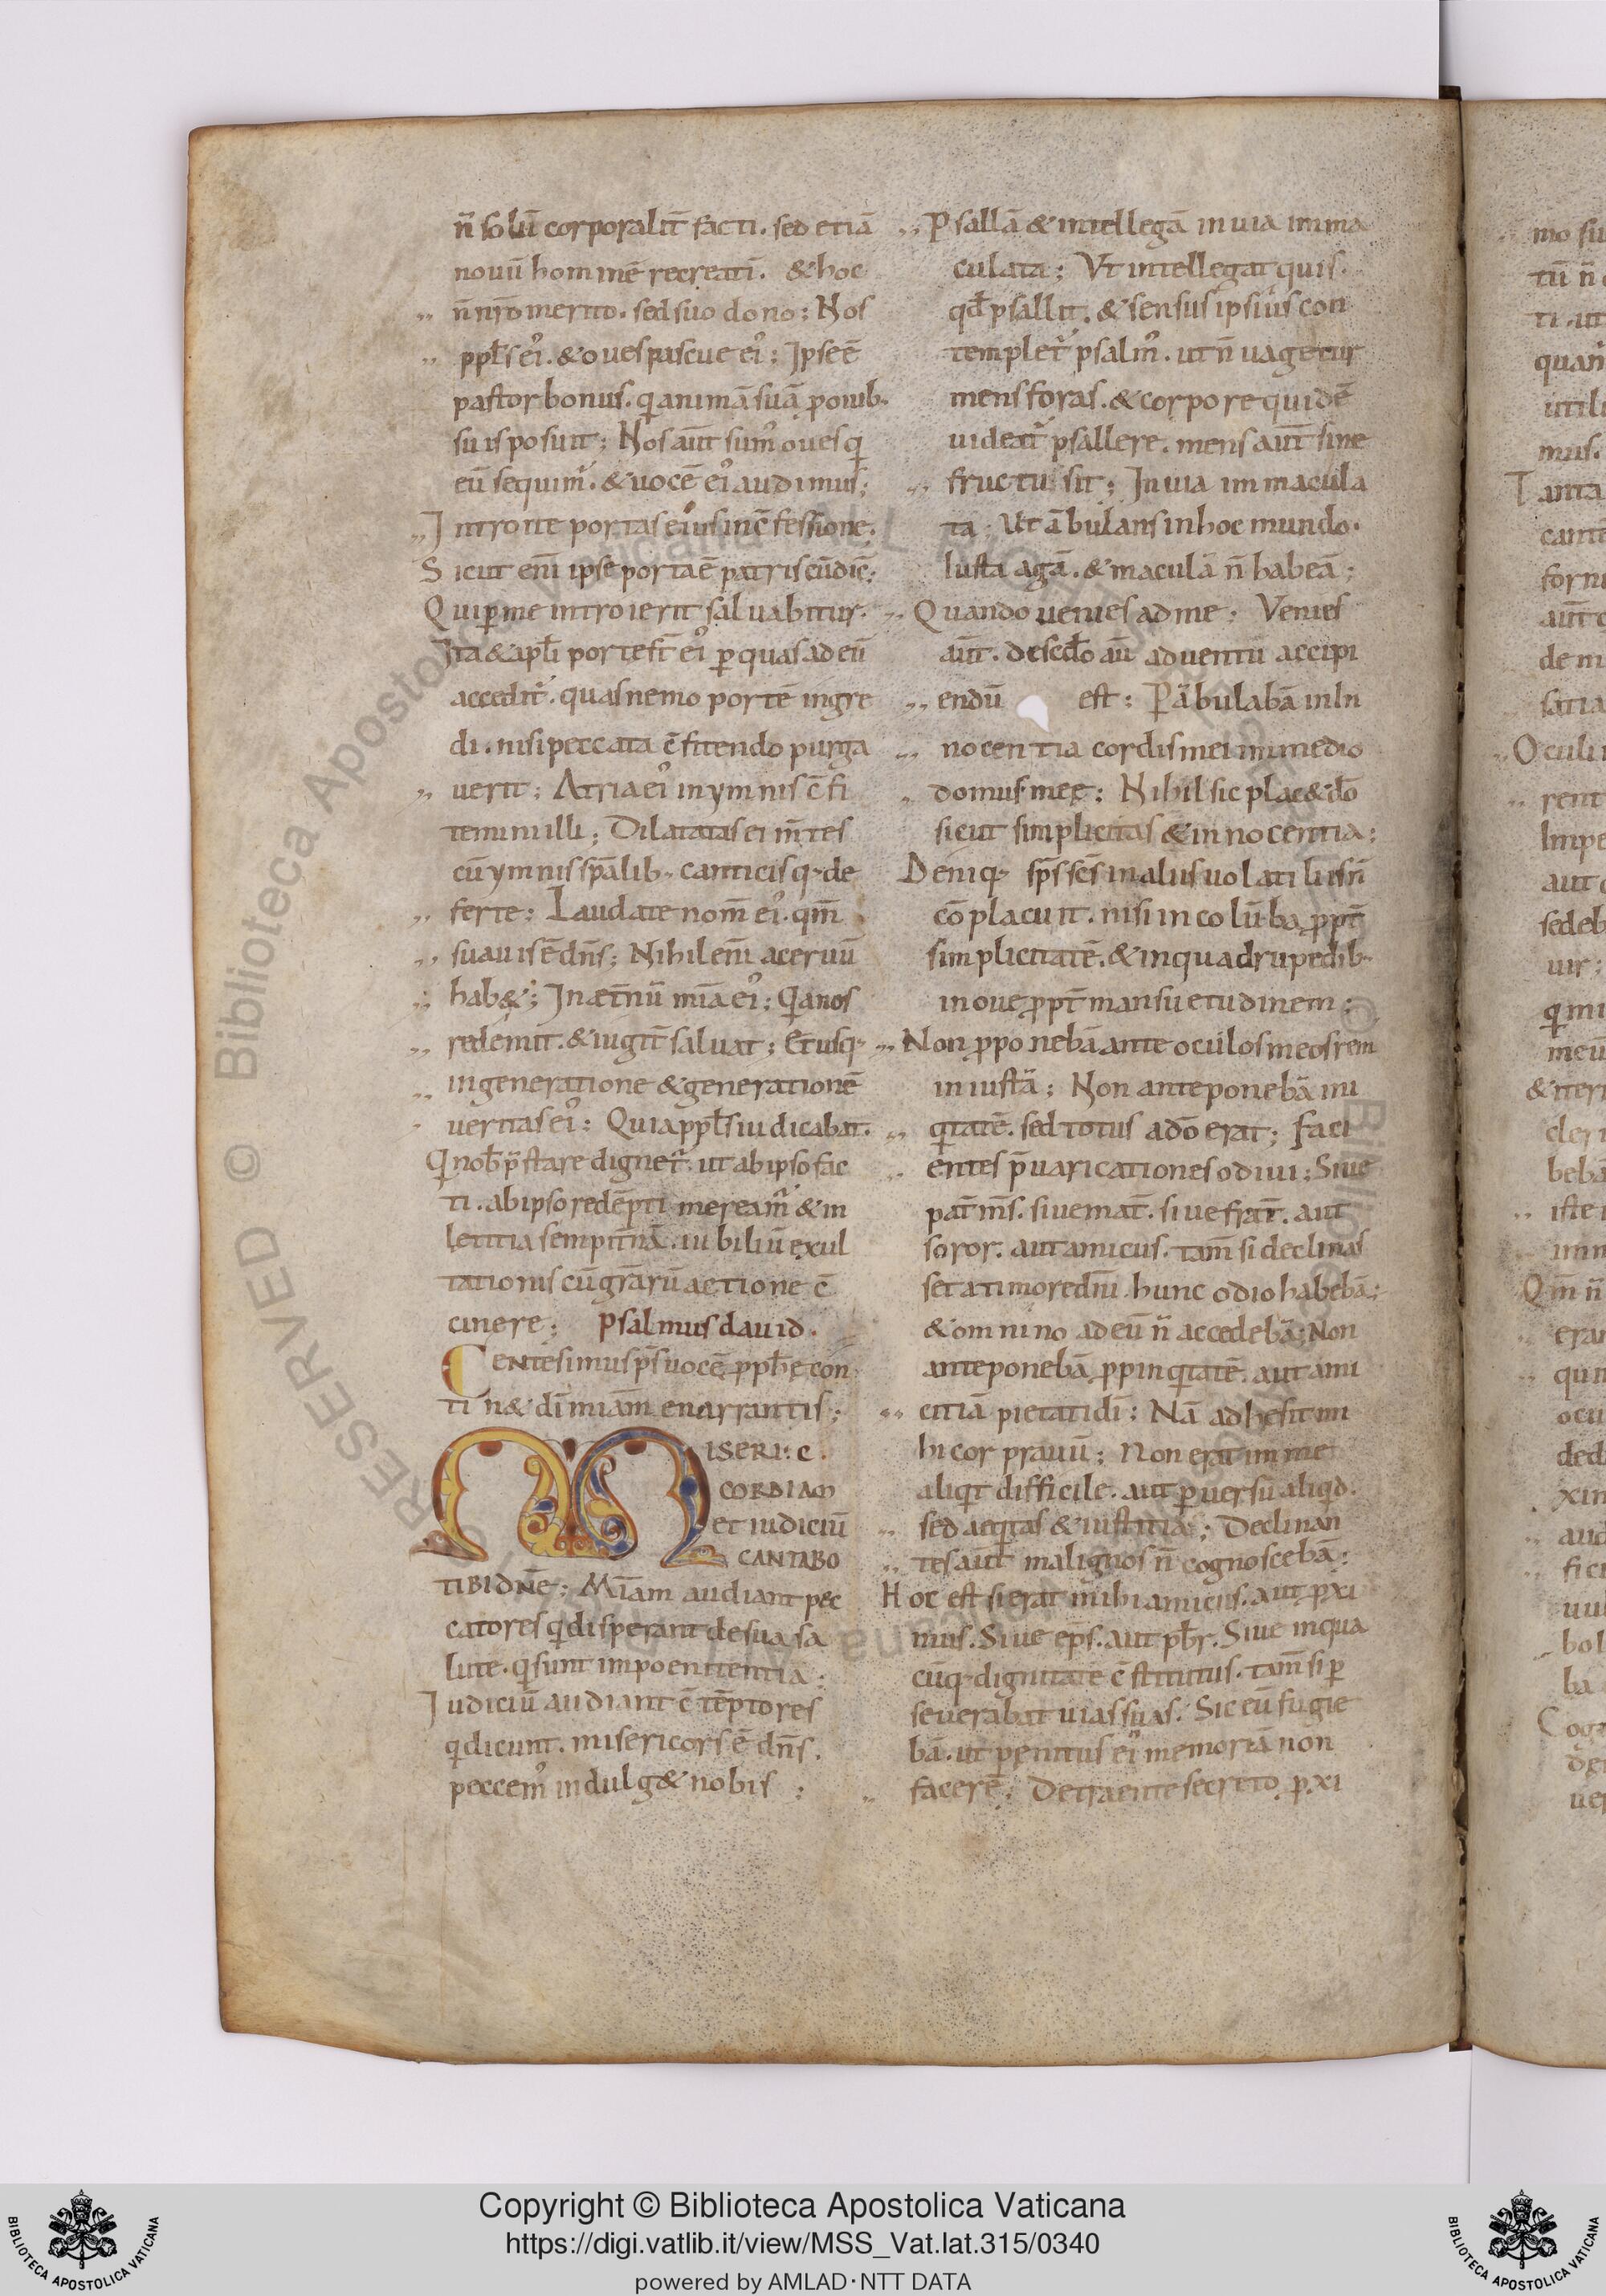 n̄ solū corporalit̄ facti. sed etiā
nouū hominē recreati. & hoc
n̄ nr̄o merito. sed suo dono: Nos
ppl̄s ei'. & oues pascue ei': Ipse ē
pastor bonus. qi animā suā p ouib·
suis posuit; Nos aut̄ sum' oues qi
eū sequim'. & uocē ei' audimus;
Introite portas eius in c̄fessione.
Sicut eni ipse porta ē patris cū dic̄:
Qui p me introierit saluabitur.
Ita & apl̄i porte st̄ ei' p quas ad eū
accedit'. quas nemo portē ingre
di. nisi peccata c̄fitendo purga
uerit; Atria ei' in ymnis c̄fi
temini illi; Dilatatas ei m̄tes
cū ymnis sp̄alib· canticisq· de
ferte: Laudate nom̄ ei'. qm̄
suauis ē dn̄s; Nihil eni aceruū
hab&; In æt̄nū mīa ei': Qi a nos
redemit. & iugit̄ saluat; Et usq·
in generatione & generationē
ueritas ei': Quia ppl̄s iudicabat.
Qi nob̄ p̄stare dignet'. ut ab ipso fac
ti. ab ipso redēpti meream' & in
letitia sempit̄nā. iubiliū exul
tationis cū gr̄arū actione c̄
cinere: Psalmus dauid.
Centesimus p̄s uocē pph̄e con
tin& dī miām enarrantis;
MISERI: C.
CORDIAM
et iudiciū
CANTABO
TIBI DN̄E: Mīam audiant pec
catores qi disperant de sua sa
lute. qi sunt in poenitentia:
Iudiciū audiant c̄tēptores
qi dicunt. misericors ē dn̄s.
peccem' indulg& nobis :
Psallā & intellegā in uia imma
culata; Vt intellegat quis.
qd̄ psallit. & sensus ipsius con
templet' psalm'. ut n̄ uagetur
mens foras. & corpore quidē
uideat' psallere. mens aut̄ sine
fructu sit; In uia immacula
ta. Ut ābulans in hoc mundo.
Iusta agā. & maculā n̄ habeā;
Quando uenies ad me; Venies
aut̄. de scd̄o aū aduentū accipi
endū est: Pābulabā in In
nocentia cordis mei in medio
domus meę: Nihil sic plac& dō
sicut simplicitas & innocentia:
Deniq· sp̄s sc̄s in alius uolatilis n̄
cōplacuit. nisi in colūba ppt̄
simplicitatē. & in quadrupedib·
in oue ppt̄ mansuetudinem:
Non pponebā ante oculos meos rem
iniustā; Non anteponebā ini
qitatē. sed totus ad ō erat; Faci
entes p̄uaricationes odiui: Siue
pat̄ m̄s. siue mat̄. siue frat̄. aut
soror. aut amicus. tam̄ si declinas
set a timore dn̄i. hunc odio habebā:
& omnino ad eū n̄ accedebā; Non
anteponebā ppinqitatē. aut ami
citiā pietati dī: Nā adhesit mi
hi cor prauū; Non erat in me
aliqit difficile. aut puersū aliqid.
sed aeqitas & iustitia; Declinan
tes aūt malignos n̄ cognoscebā:
Hoc est si erat mihi amicus. aut pxi
mus. Siue ep̄s. aut pb̄r. Siue in qua
cūq· dignitate c̄stitutus. tam̄ si p
seuerabat uias suas. Sic eū fugie
bā. ut penitus ei' memoriā non
facerē; Detraente secreto pxi
Copyright © Biblioteca Apostolica Vaticana
https://digi.vatlib.it/view/MSS_Vat.lat.315/0340
powered by AMLAD·NTT DATA